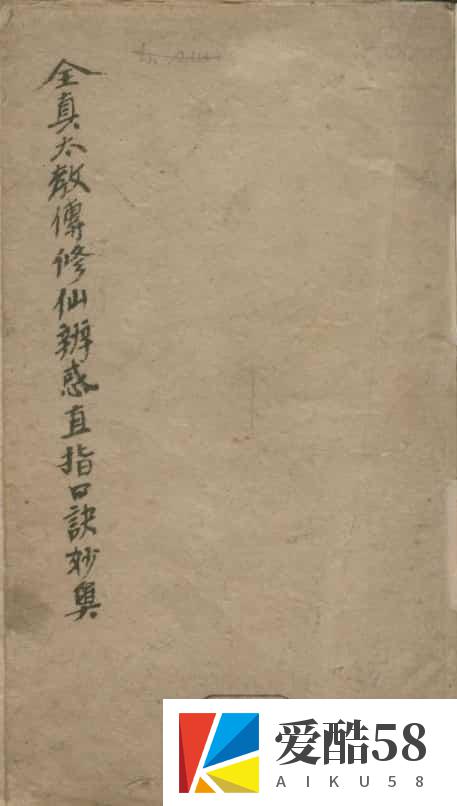 全真太教傳修仙辨惑直指口訣妙奧
爱酷58
AIKU58